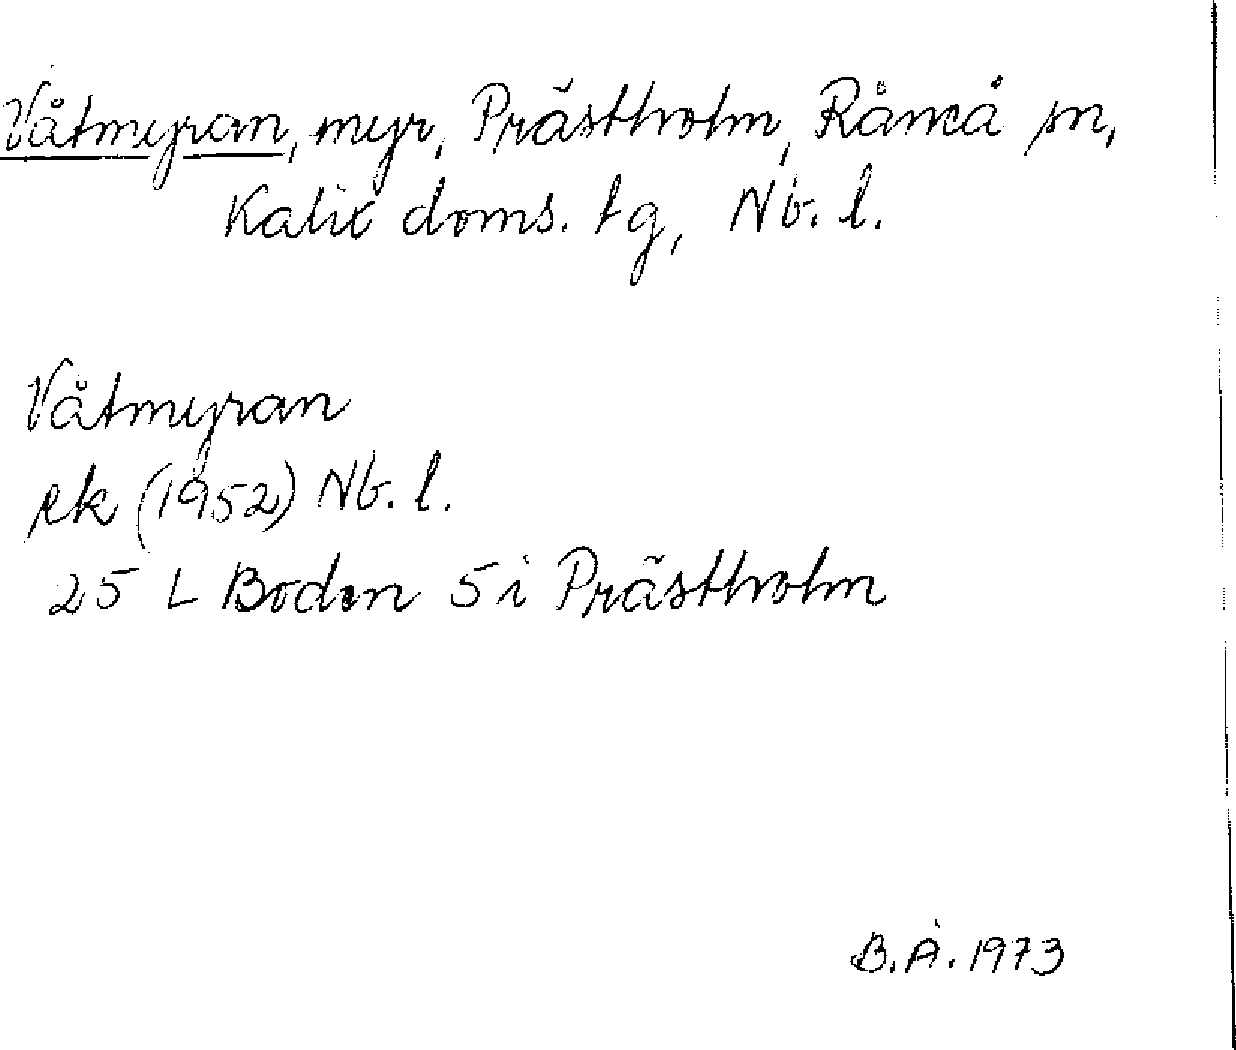 Våtmyran, myr, Prästholm, Råneå sn,
Kalix doms. tg, Nb. l.
Våtmyran
ek (1952) Nb. l.
25 L Boden 5 i Prästholm
B.Å. 1973